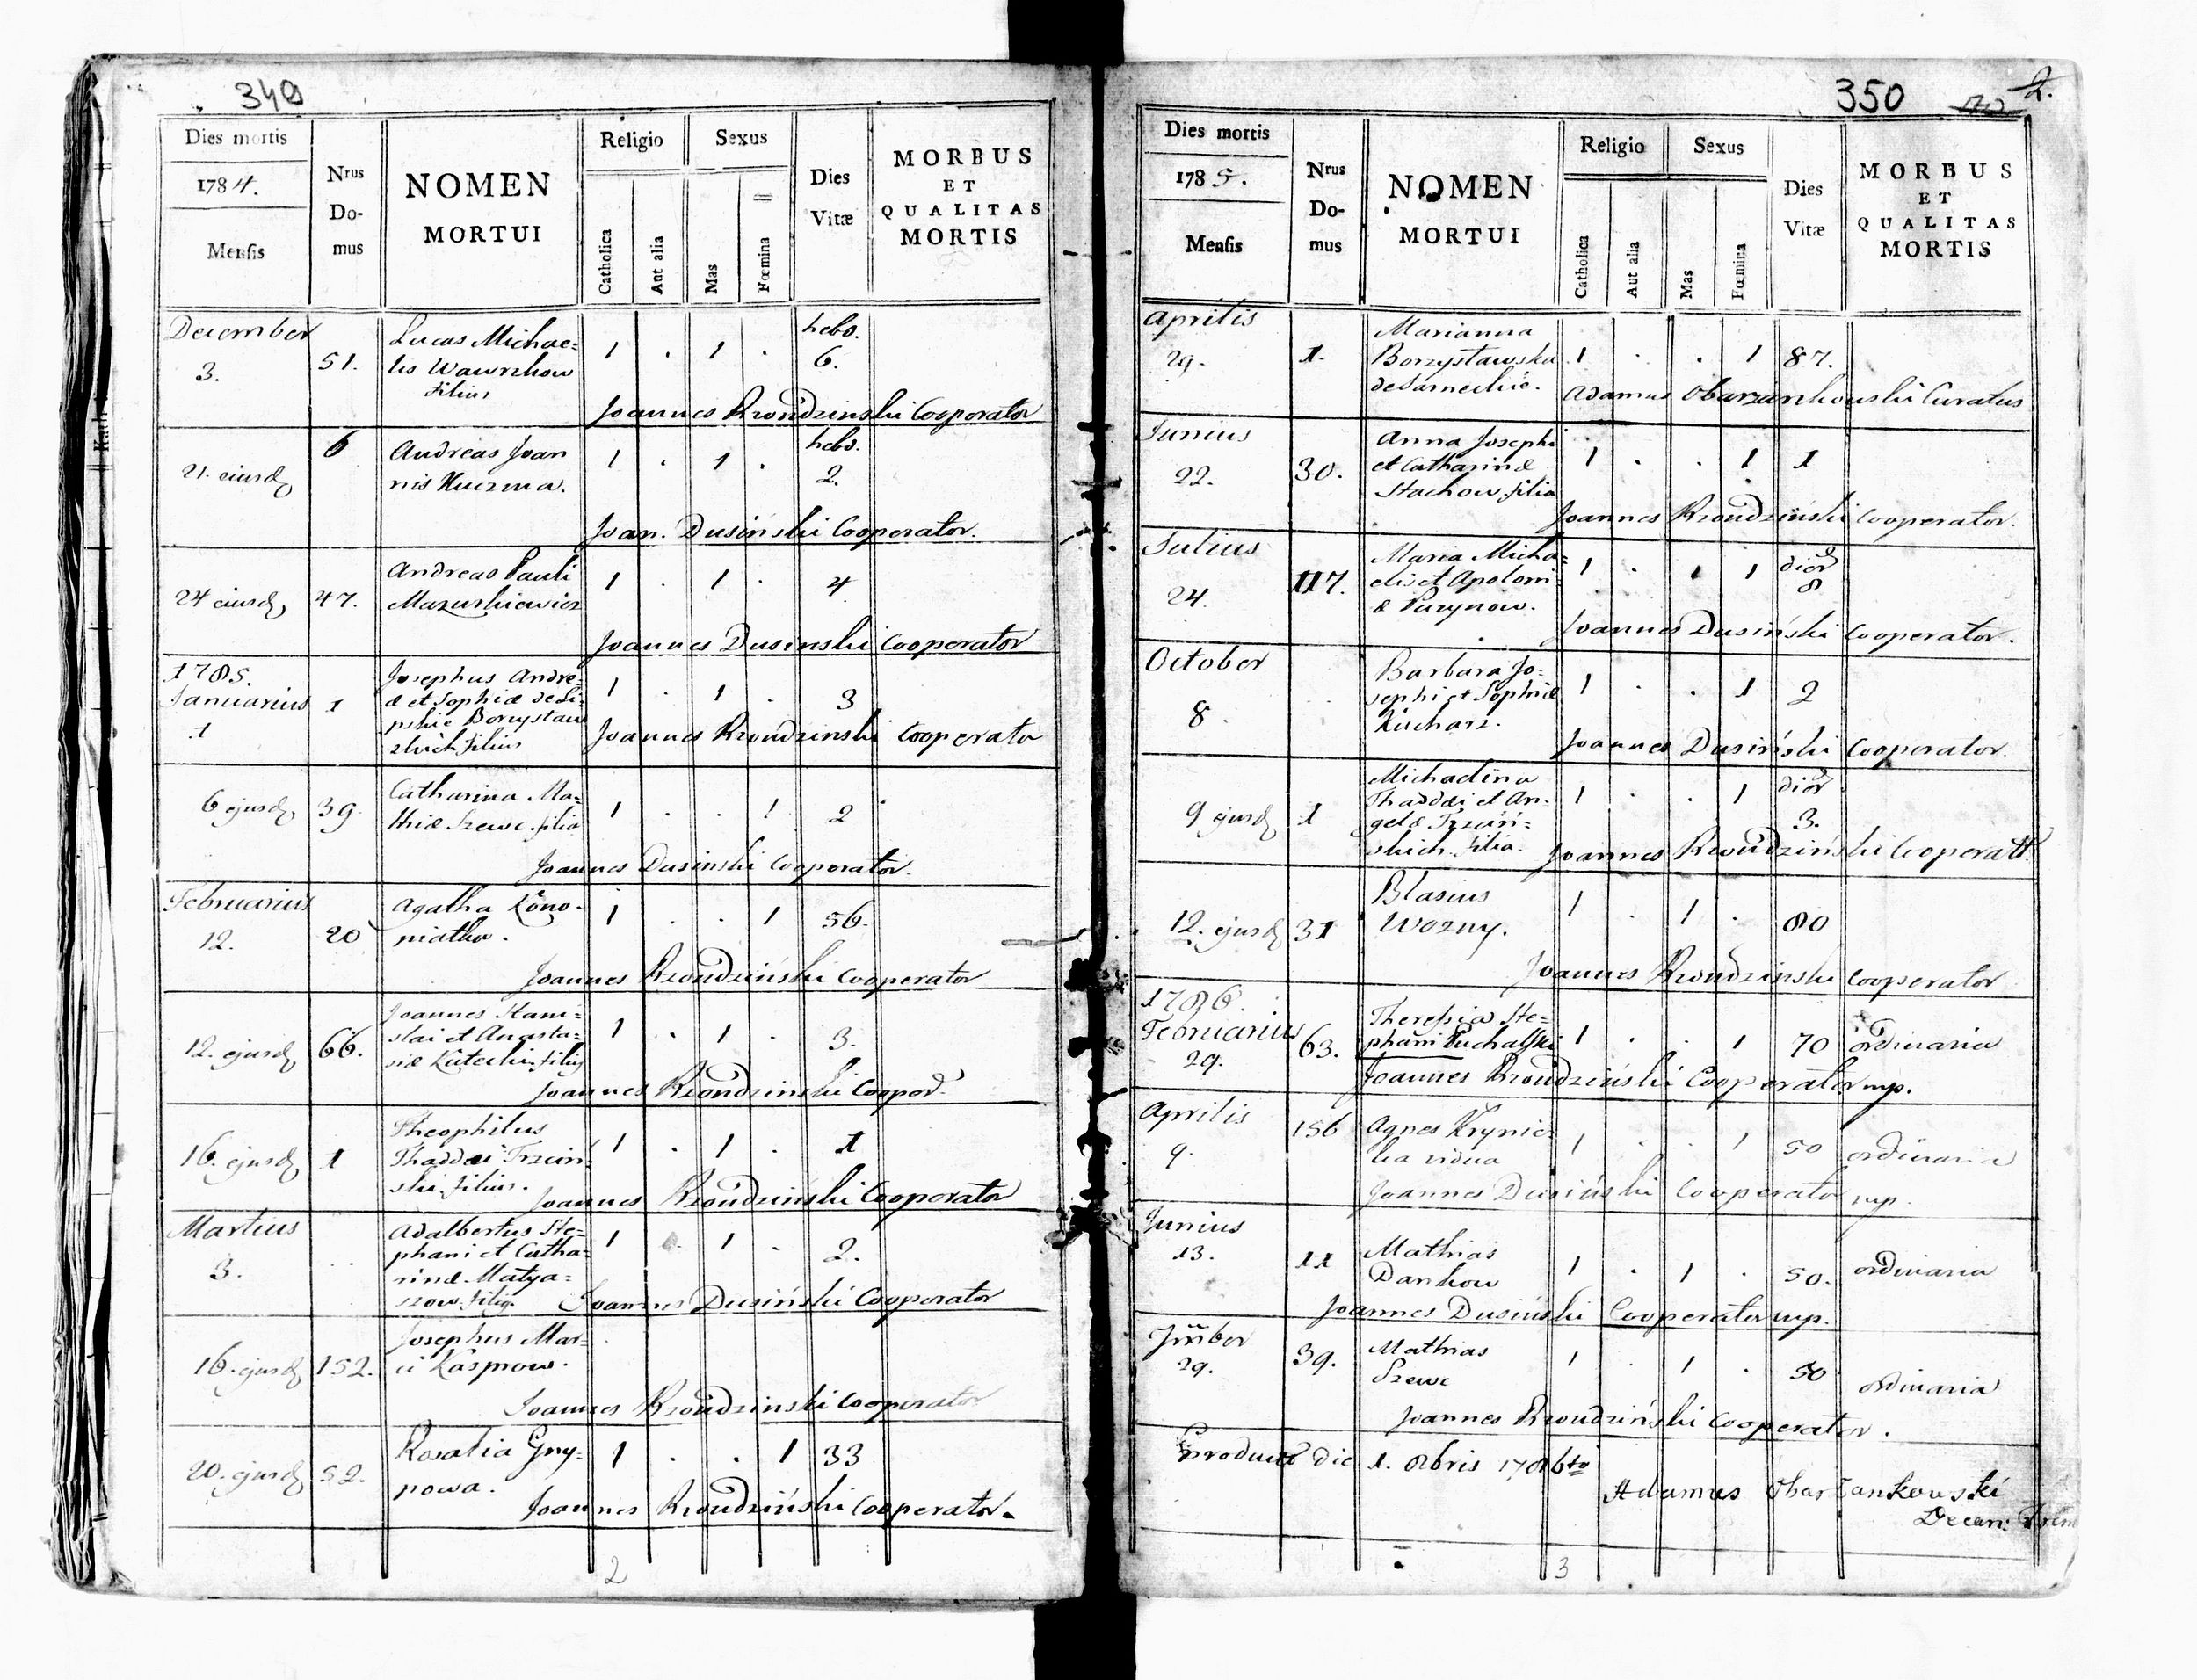 349
Dies mortis
1784.
Mensis
Nrus
Do-
mus
NOMEN
MORTUI
Religio
Catholica
Aut alia
Sexus
Mas
Fœmina
Dies
Vitæ
MORBUS
ET
QUALITAS
MORTIS
December
3.
51.
Lucas Michae=
lis Wawrzkow
filius
1 . 1 .
hebd.
6.
Joannes Rzondzinski Cooperator
21. eiusd
6
Andreas Joan
nis Kuczma.
1 . 1 .
hebd.
2.
Joan. Dusiński Cooperator.
24 eiusd
47.
Andreas Pauli
Mazurkiewicz
1 . 1 . 4
Joannes Dusinski Cooperator
1785.
Januarius
1
1
Josephus Andre=
æ et Sophiæ de Li=
pskie Borzystaw
zkich filius
1 . 1 . 3
Joannes Rzondzinski Cooperato
6 ejusd
39
Catharina Ma=
thiæ Szewc filia
1 . . 1 2
Joannes Dusinski Cooperator.
Februarius
12.
20
Agatha Kono-
piatka.
1 . . 1 56.
Joannes Rzondziński Cooperator
12. ejusd
66.
Joannes Stani=
slai et Anasta=
siæ Kutecki fili9
1 . 1 . 3.
Joannes Rzondzinski Cooper.
16. ejusd
1
Theophilus
Thaddæi Trzciń=
ski filius.
1 . 1 . 1
Joannes Rzondziński Cooperator
Martius
3.
Adalbertus Ste=
phani et Catha=
rinæ Matya=
szow fili9
1 . 1 . 2.
Joannes Dusiński Cooperator
16. ejusd
152.
Josephus Mar=
ci Kasprow.
Joannes Rzondzinski Cooperator
20. ejusd
52.
Rosalia Gny=
powa.
1 . . 1 33
Joannes Rzondziński Cooperator.
2
350
2.
Dies mortis
1785.
Mensis
Nrus
Do-
mus
NOMEN
MORTUI
Religio
Catholica
Aut alia
Sexus
Mas
Fœmina
Dies
Vitæ
MORBUS
ET
QUALITAS
MORTIS
Aprilis
29.
1.
Marianna
Borzystawska
de Sarneckie.
1 . . 1 87.
Adamus Obarzankowski Curatus
Junius
22.
30.
Anna Josephi
et Catharinæ
Stachow filia
1 . . 1 1
Joannes Rzondziński Cooperator.
Julius
24.
117.
Maria Micha=
elis et Apoloni=
æ Puzynow.
1 . 1 1
dier
8
Joannes Dusiński Cooperator.
October
8.
Barbara Jo=
sephi et Sophiæ
Kucharz.
1 . . 1 2
Joannes Dusiński Cooperator.
9 ejusd
1
Michalina
Thaddæi et An=
gelæ Trzciń=
skich filia.
1 . . 1
dier
3.
Joannes Rzondziński Cooperatt.
12. ejusd
31
Blasius
Wozny.
1 . 1 . 80
Joannes Rzondzinski Cooperator
1786.
Februarius
29.
63.
Theressia Ste=
phani Puchalski
1 . . 1 70 ordinaria
Joannes Rzondziński Cooperator mp.
Aprilis
9.
156
Agnes Krynic=
ka vidua
1 . . 1 50 ordinaria
Joannes Dusiński Cooperator mp.
Junius
13.
11
Mathias
Dankow
1 . 1 . 50. ordinaria
Joannes Dusiński Cooperator mp.
29.
39.
Mathias
Szewc
1 . 1 . 50 ordinaria
Joannes Rzondziński Cooperator.
die 1. 8bris 1786to
Adamus Obarzankowski
Decan:
3